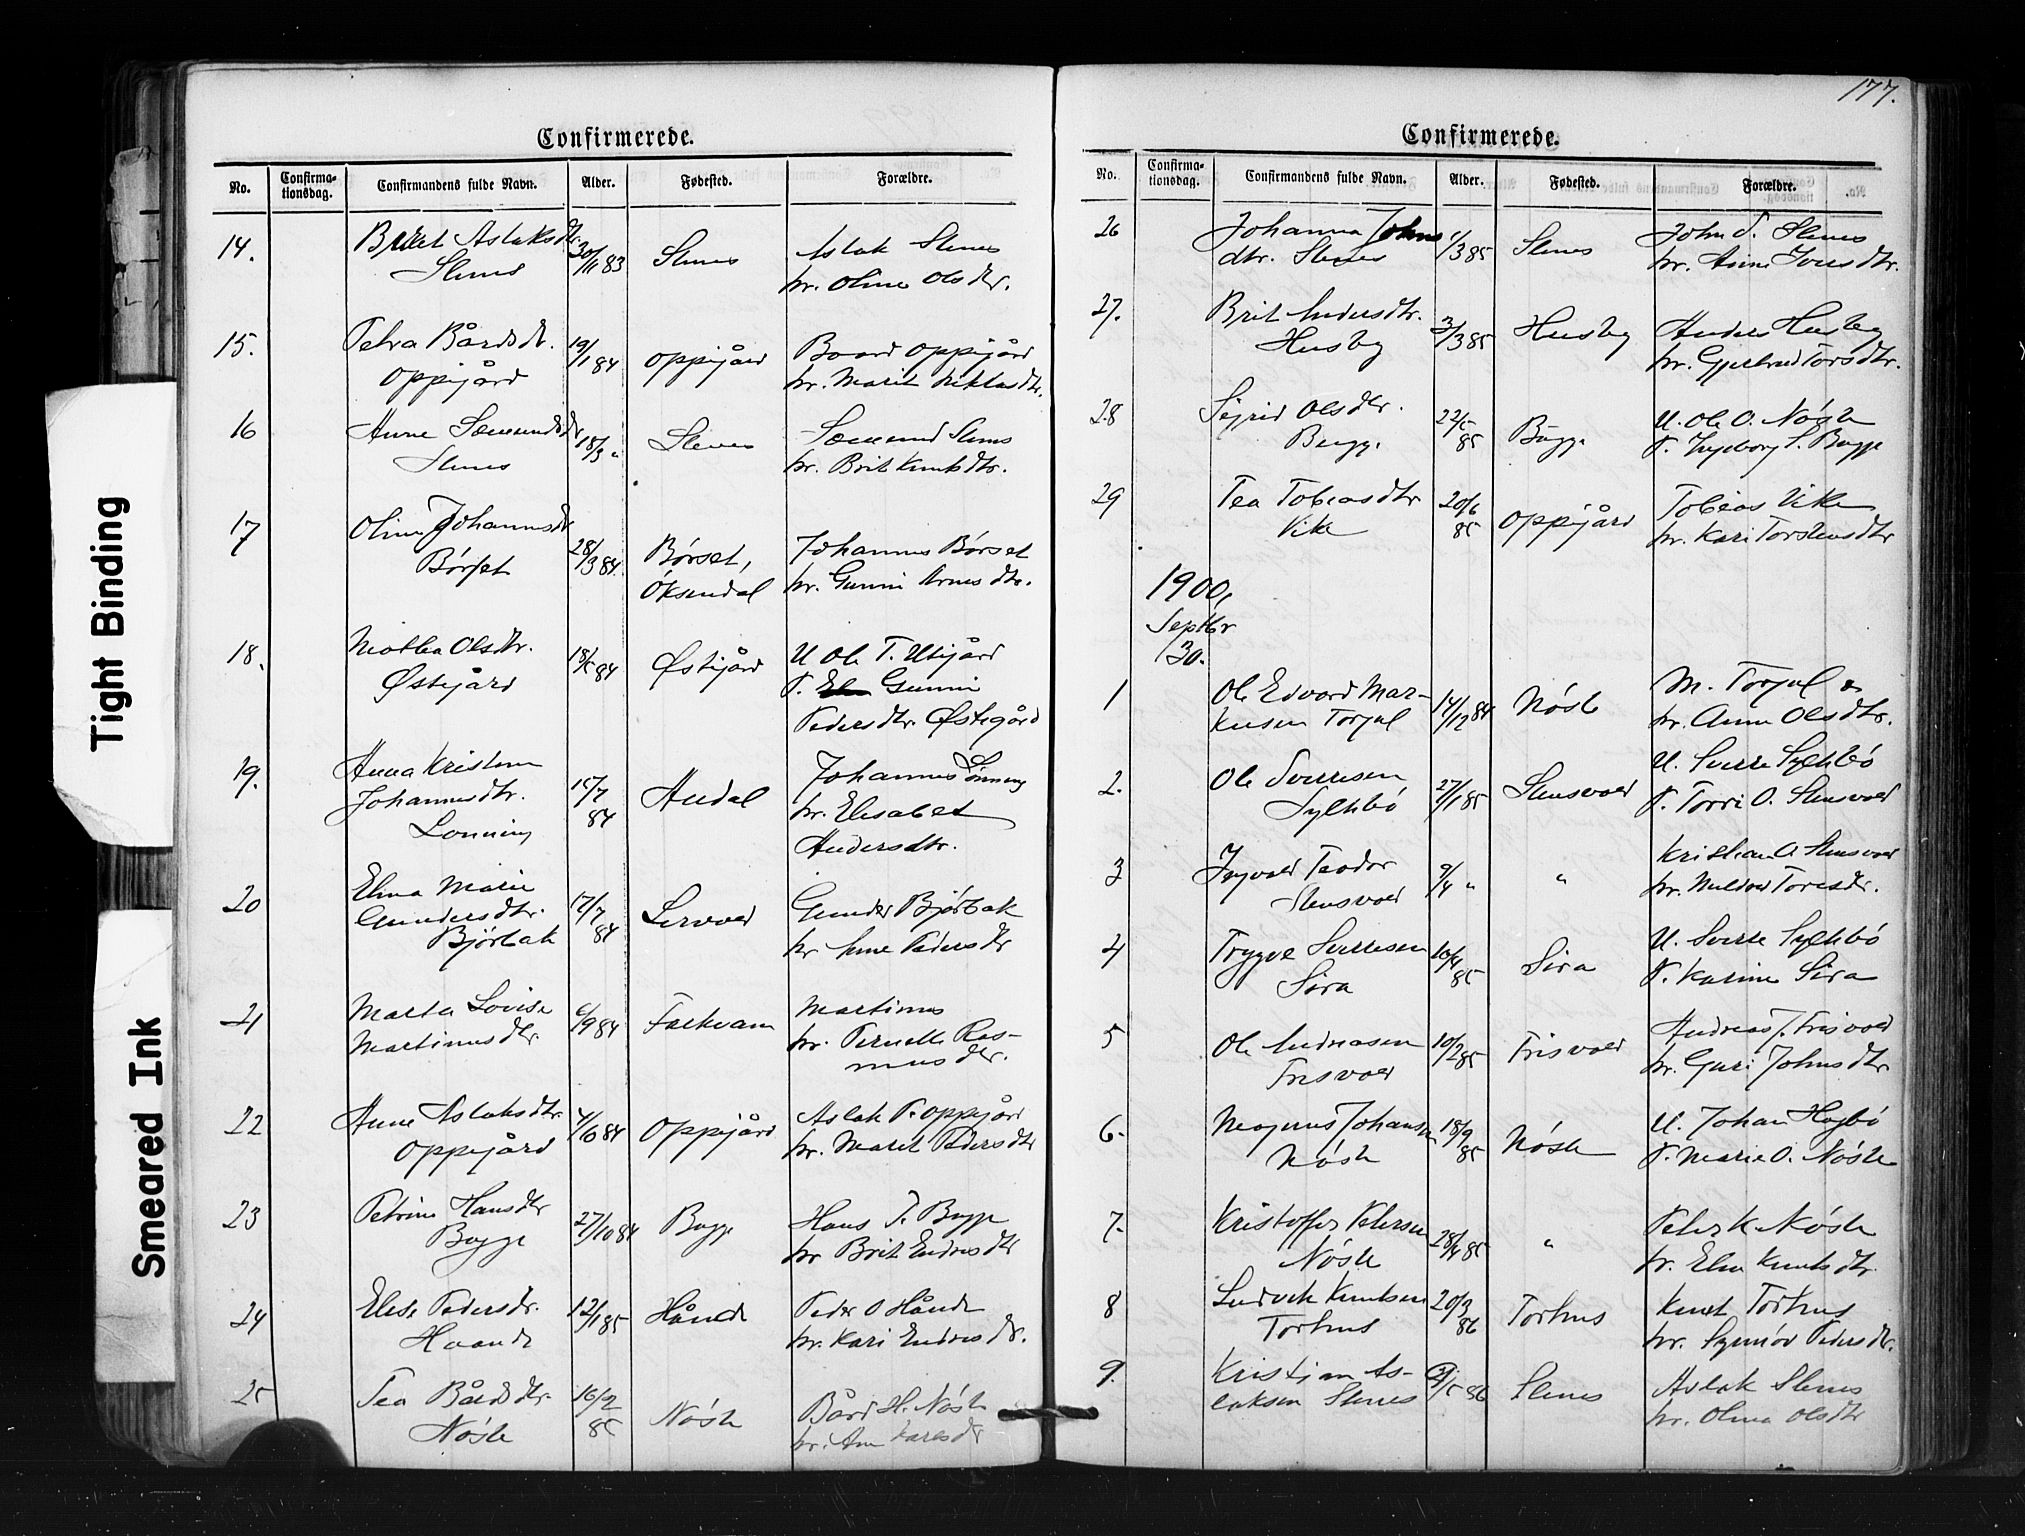 Tight Binding
Smeared Ink
Confirmerede.
No.
Confirma-
tionsdag.
Confirmandens fulde Navn.
Alder.
Fødested.
Forældre.
14.
Brit Aslaksdtr.
Stenes
30/11 83
Stenes
Aslak Stenes
hr. Oline Olsdtr.
15.
Petra Bårdsdtr.
Oppigård
19/1 84
Oppigård
Baard Oppigård
hr. Marit Niklasdtr.
16
Anne Sæmundsdtr
Stenes
18/3 "
Stenes
Sæmund Stenes
hr. Brit Knutsdtr.
17
Oline Johannesdtr
Børset
28/3 84.
Børset,
Öksendal
Johannes Børset
hr. Gunni Arnesdtr.
18.
Mothea Olsdtr.
Østigård
18/5 84
Østigård
U Ole T. Utigård
P. Gunni
Pedersdtr. Østigård
19.
Anna Kristine
Johannesdtr.
Lønning
15/7
84
Audal
Johannes Lønning
hr. Elisabet
Andersdtr.
20
Elma Marie
Gundersdtr.
Bjørbak
17/7
84
Lervaad
Gunder Bjørbak
hr Anne Pedersdtr
21
Marta Lovise
Martinusdtr
6/9 84
Falkvam
Martinus
hr. Pernelle Ras-
musdtr.
22
Anne Aslaksdtr.
Oppigård
4/10 84
Oppigård
Aslak P. Oppigård
hr. Marit Pedersdtr
23
Petrine Hansdtr
Bugge
27/10 84
Bugge
Hans T. Bugge
hr Brit Endresdtr
24
Elise Pedersdtr.
Haande
12/1 85
Hånde
Peder O Hånde
hr. Kari Endresdtr.
25
Tea Bårdsdtr.
Nøste
16/2
85
Nøste
Bård H. Nøste
hr. Ane Karlsdtr
177.
Confirmerede.
No.
Confirma-
tionsdag.
Confirmandens fulde Navn.
Alder.
Fødested.
Forældre.
26
Johanna Johns
dtr. Stenes
1/3 85
Stenes
John S. Stenes
hr. Anne Iversdtr.
27.
Brit Andersdtr.
Husby
3/3 85
Husby
Anders Husby
hr. Gjertrud Torsdtr.
28
Sigrid Olsdtr.
Bugge
22/5
85
Bugge
U. Ole O. Nøste
P. Ingeborg T. Bugge
29
Tea Tobiasdtr
Vike
20/6
85
Oppigård
Tobias Vike
hr. Kari Torstensdtr
1900,
Septbr
30.
1
Ole Edvard Mar-
kusen Torjul
14/12 84
Nøste
M. Torjul &
hr. Anne Olsdtr.
2.
Ole Sverresen
Syltebø
27/1 85
Stensvold
U. Sverre Syltebø
P. Torri O. Stensvold
3
Ingvald Teodor
Stensvold
9/4 "
"
Kristian O Stensvold
hr. Mildrid Toresdtr.
4
Trygve Sverresen
Sira
10/4
85
Sira
U. Sverre Syltebø
P. Karine Sira
5
Ole Andreasen
Frisvold
10/2 85
Frisvold
Andreas J. Frisvold
hr. Guri Johnsdtr
6.
Magnus Johansen
Nøste
18/9
85
Nøste
U. Johan Hagbø
P. Marie O. Nøste
7.
Kristoffer Petersen
Nøste
28/4 85
"
Peter K Nøste
hr. Elen Knutsdtr.
8
Ludvik Knutsen
Torhus
20/3
86
Torhus
Knut Torhus
hr. Synnøv Pedersdtr.
9.
Kristian As-
laksen Stenes
2/5 86
Stenes
Aslak Stenes
hr. Olina Olsdtr